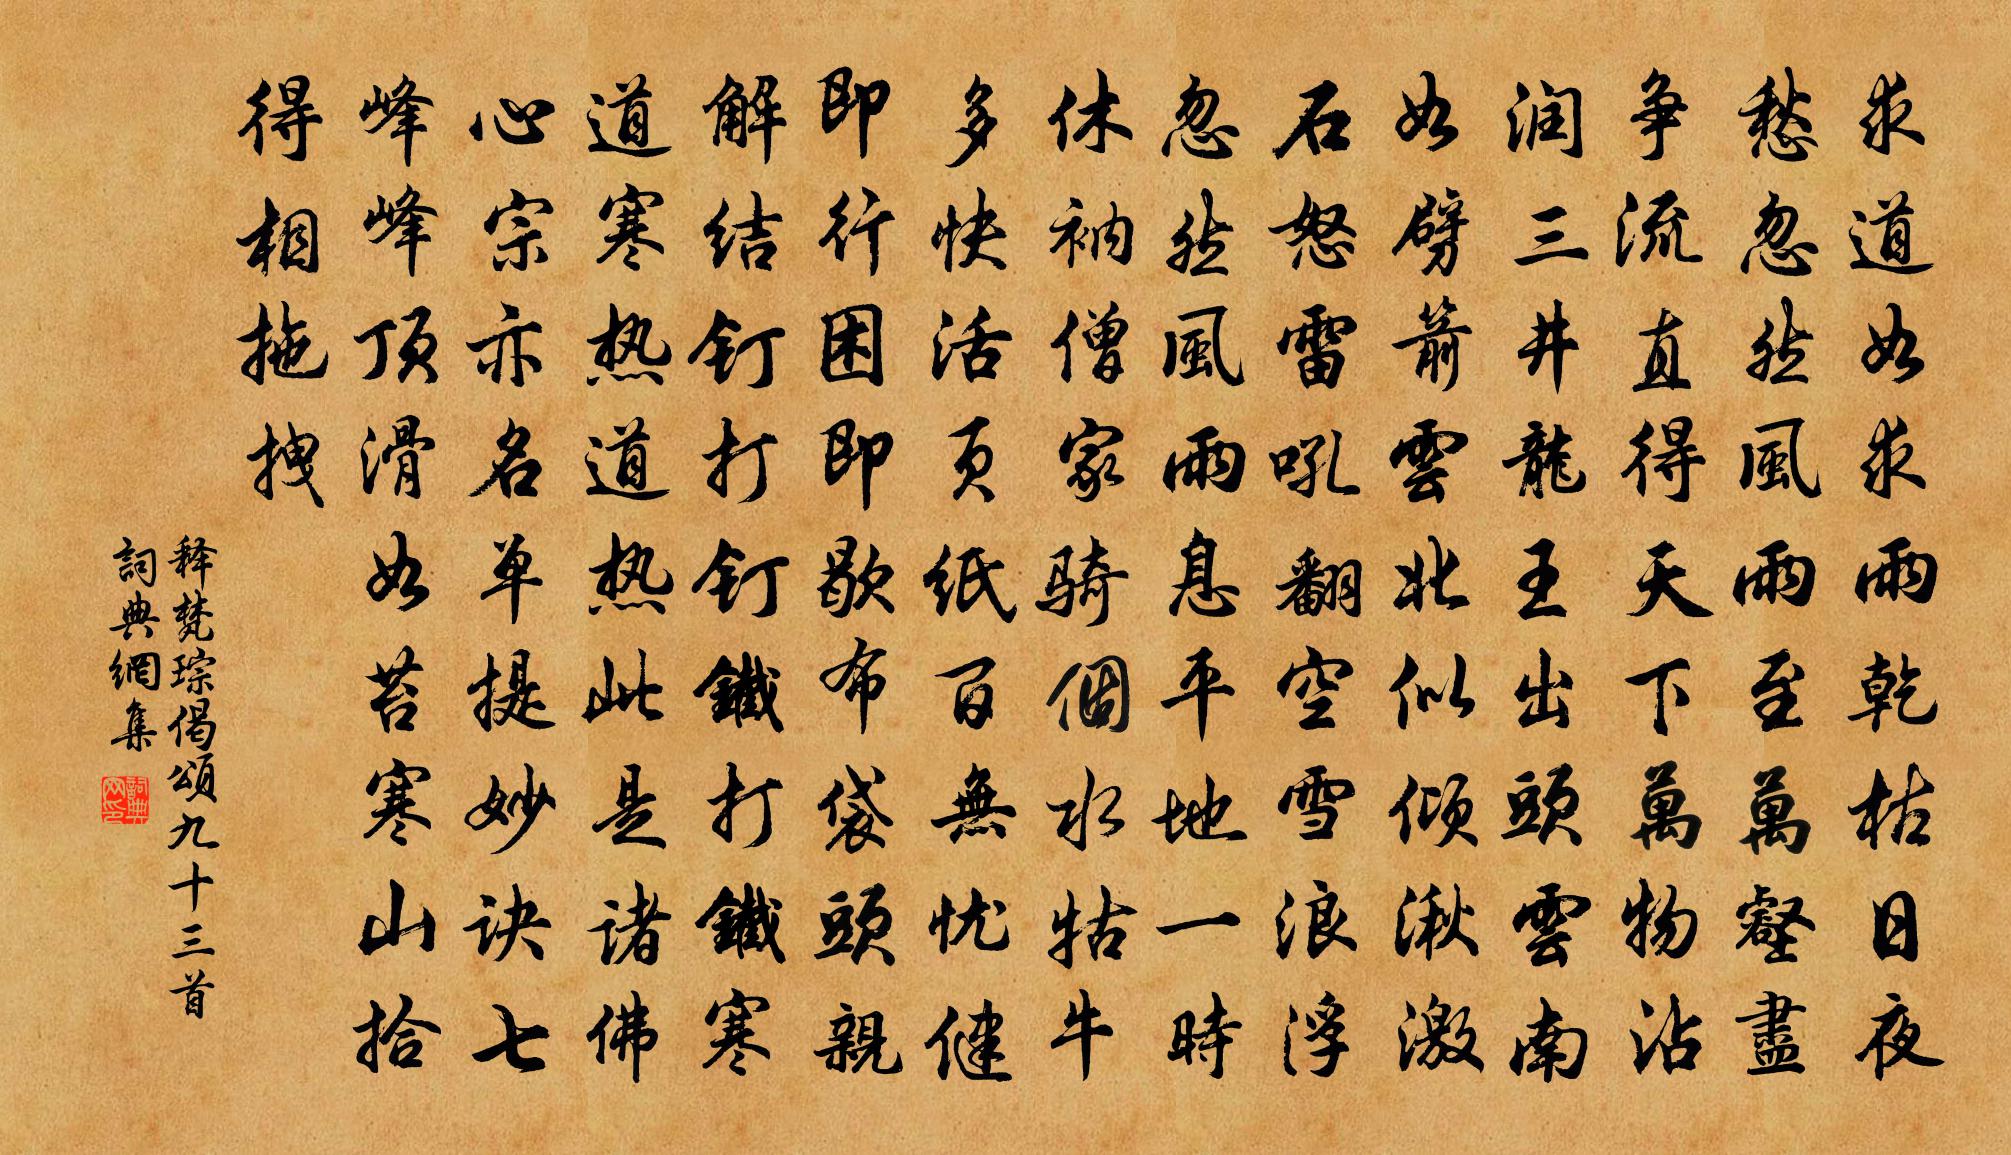 求道如求雨乾枯日夜
愁忽然風雨至萬壑盡
争流直得天下萬物沾
润三井龍王出頭雲南
如劈箭雲北似倾湫激
石怒雷吼翻空雪浪浮
忽然風雨息平地一時
休衲僧家騎個水牯牛
多快活頁紙百無忧健
即行困即歇布袋頭親
解结釘打釘鐵打鐵寒
道寒热道热此是诸佛
心宗亦名单提妙诀七
峰峰顶滑如苔寒山拾
得相拖拽
释梵琮偈頌九十三首
詞典網集
詞典网印